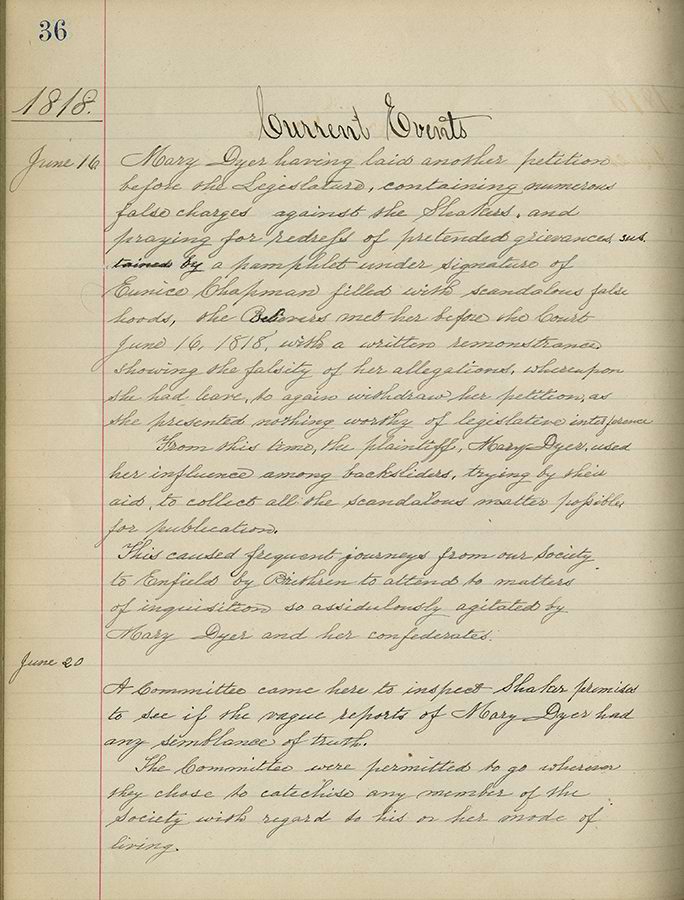 36
1818.
Current Events
June 16. Mary Dyer having laid another petition
before the Legislature, containing numerous
false charges against the Shakers, and
praying for redress of pretended grievances, sus
tained by a pamphlet under signature of
Eunice Chapman filled with scandalous false
hoods, the Believers met her before the Court
June 16, 1818, with a written remonstrance,
showing the falsity of her allegations, whereupon
she had leave, to again withdraw her petition, as
she presented nothing worthy of legislative interference
From this time, the plaintiff, Mary Dyer, used
her influence among backsliders, trying by their
aid, to collect all the scandalous matter possible
for publication.
This caused frequent journeys from our Society
to Enfield by Brethren to attend to matters
of inquisition so assidulously agitated by
Mary Dyer and her confederates.
June 20
A Committee came here to inspect Shaker premises
to see if the vague reports of Mary Dyer had
any semblance of truth.
The Committee were permitted to go wherever
they chose to catechise any member of the
Society with regard to his or her mode of
living.